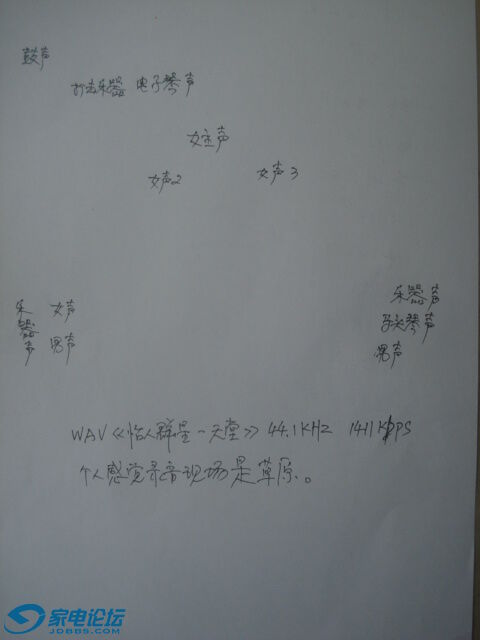 鼓声
打击乐器 电子琴声
女主声
女声2 女声3
乐器声 女声 男声
乐器声
马头琴声
男声
WAV《怡人群星-天堂》44.1KHZ 1411KbPS
个人感觉录音现场是草原。
家电论坛
JDBBS.COM